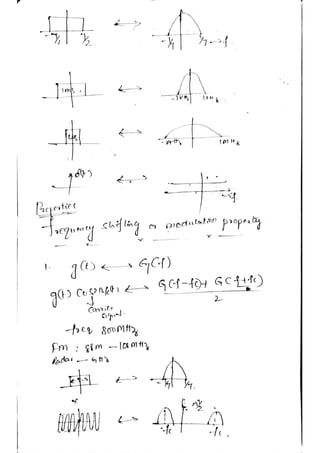 -T/2 T/2 ⟷ -1/T 1/T f
1ms ⟷ -1KHz 1KHz
1μs ⟷ -1MHz 1MHz
δ(t) ⟷ f
Properties
Frequency shifting or modulation property
1. g(t) ⟷ G(f)
g(t) cos2πfct ⟷ G(f-fc)+ G(f+fc)
2
Carrier
signal.
freq 800MHz
Fm : 88m - 108MHz
Radar - GHz
⟷ -1/T 1/T
⟷ -fc fc